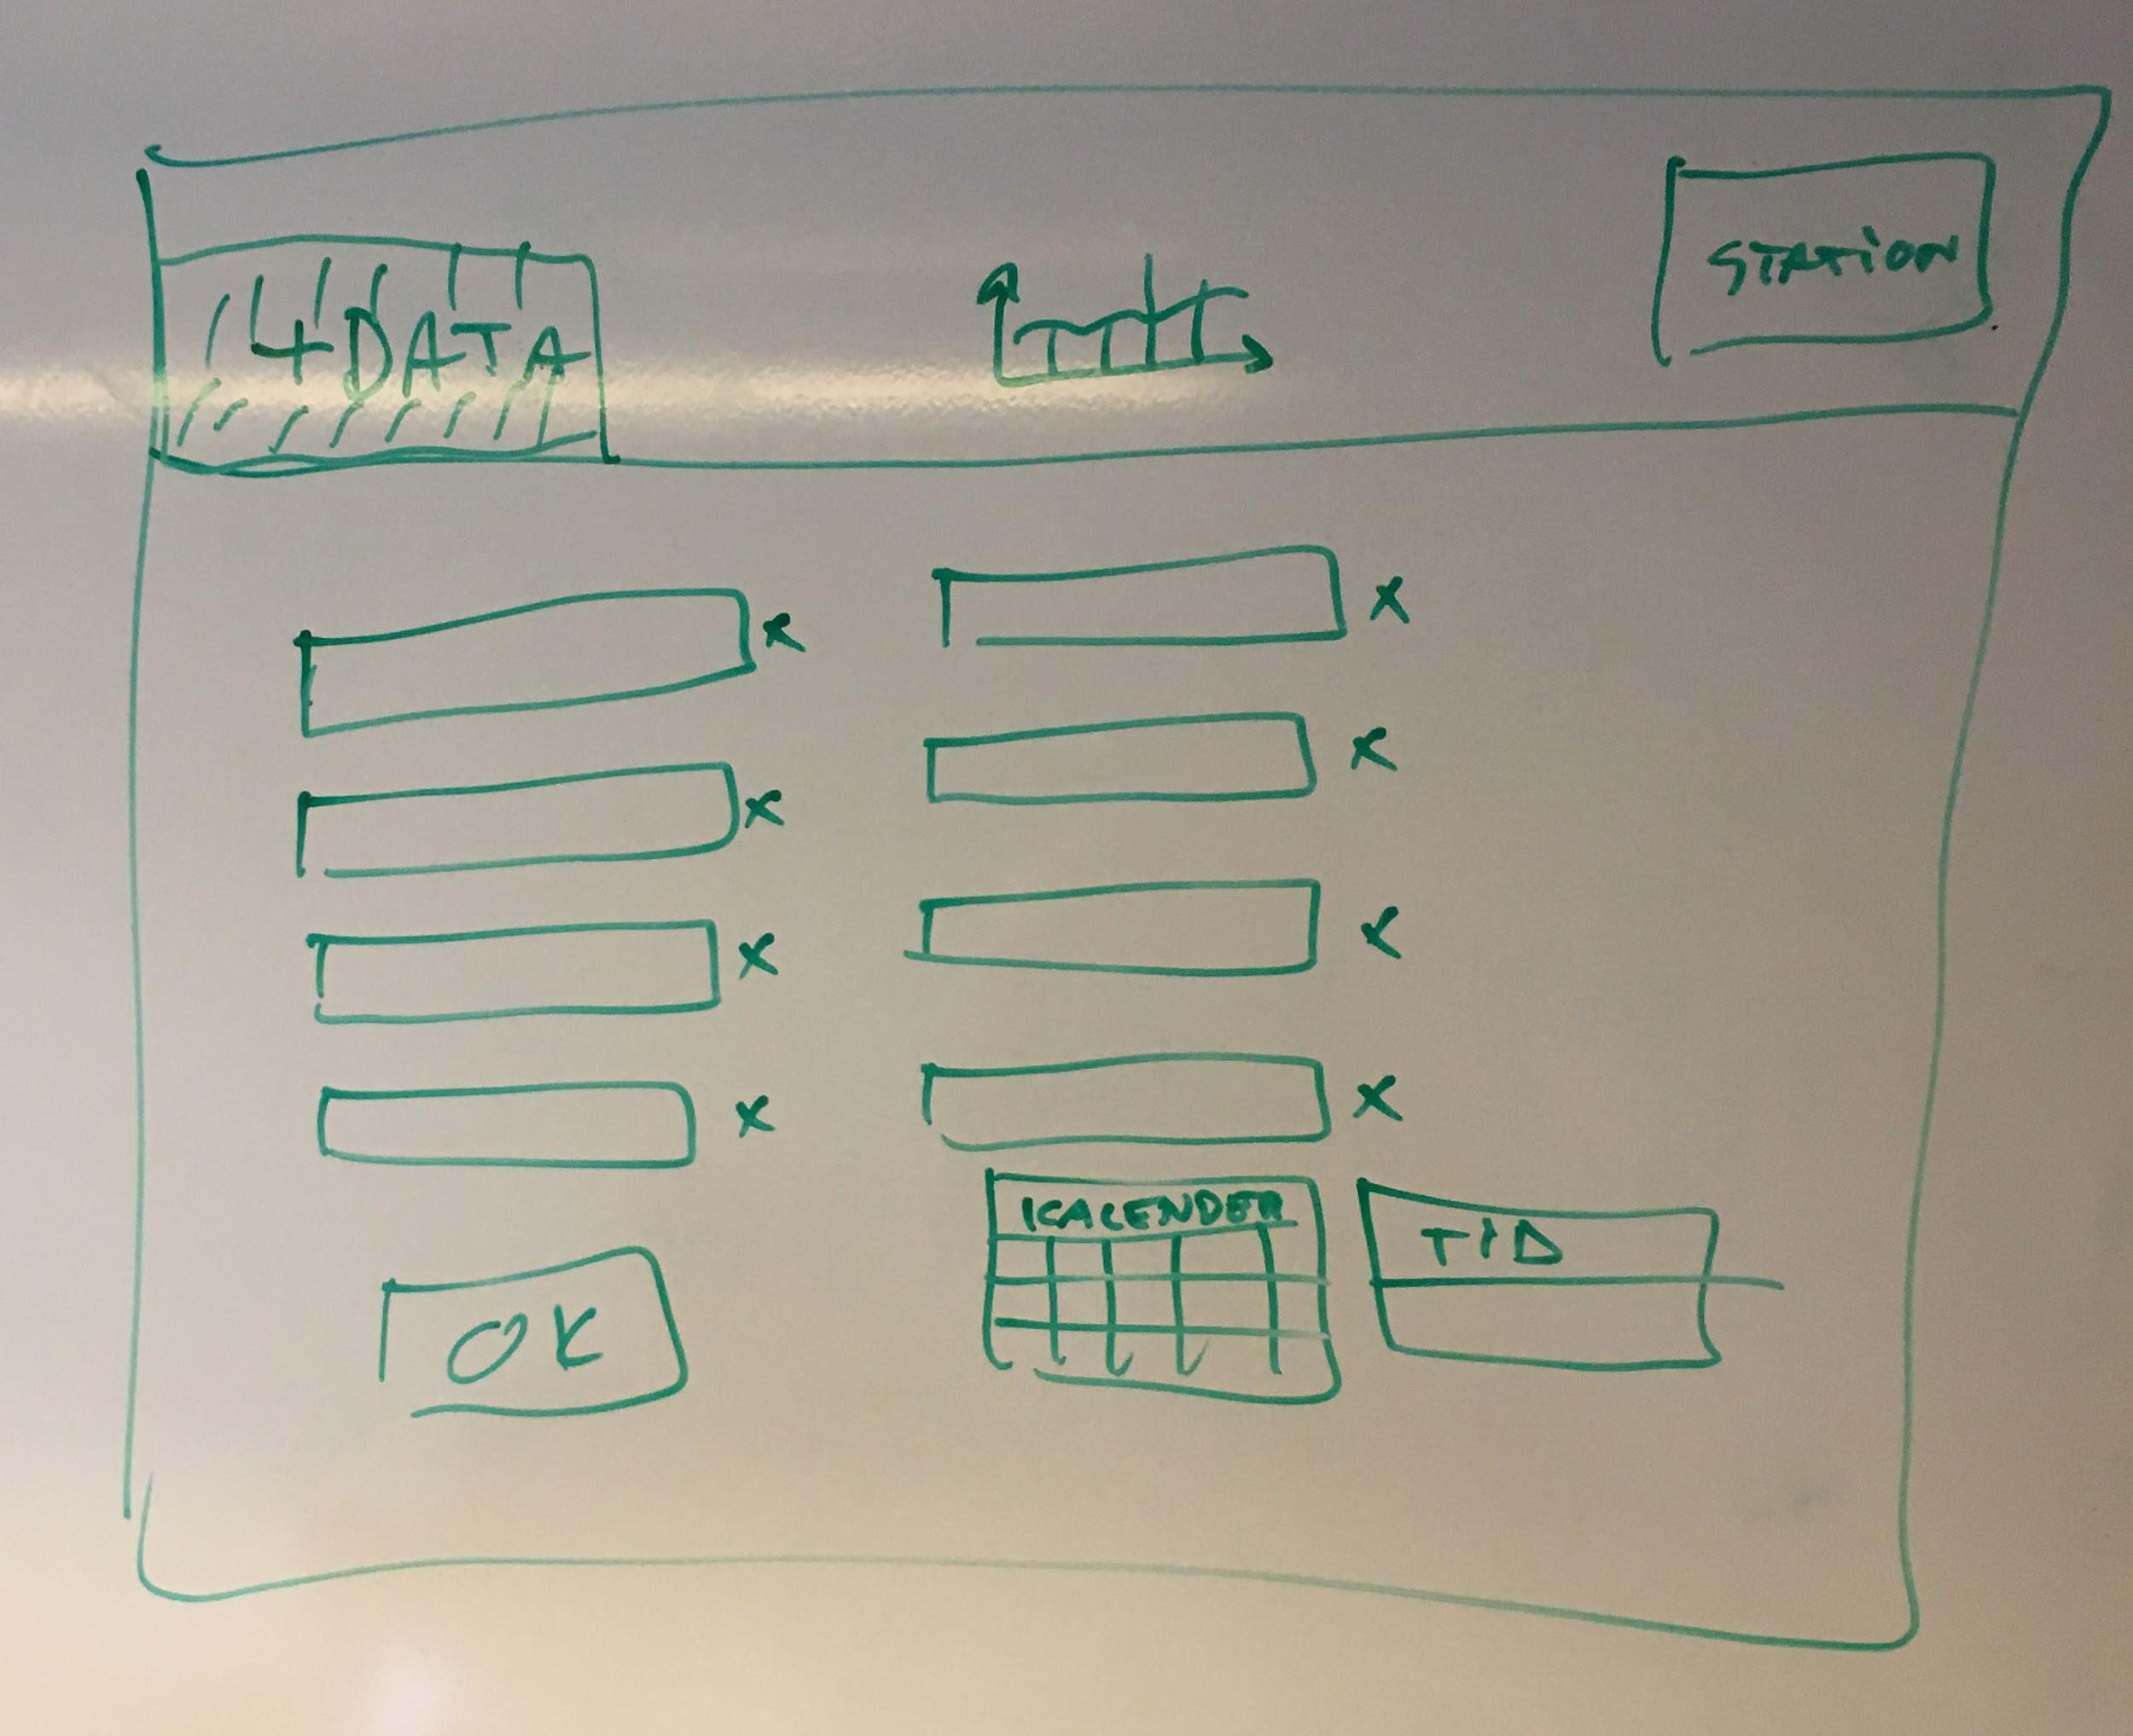 4DATA
STATION
x x
x x
x x
x x
KALENDER
TID
OK